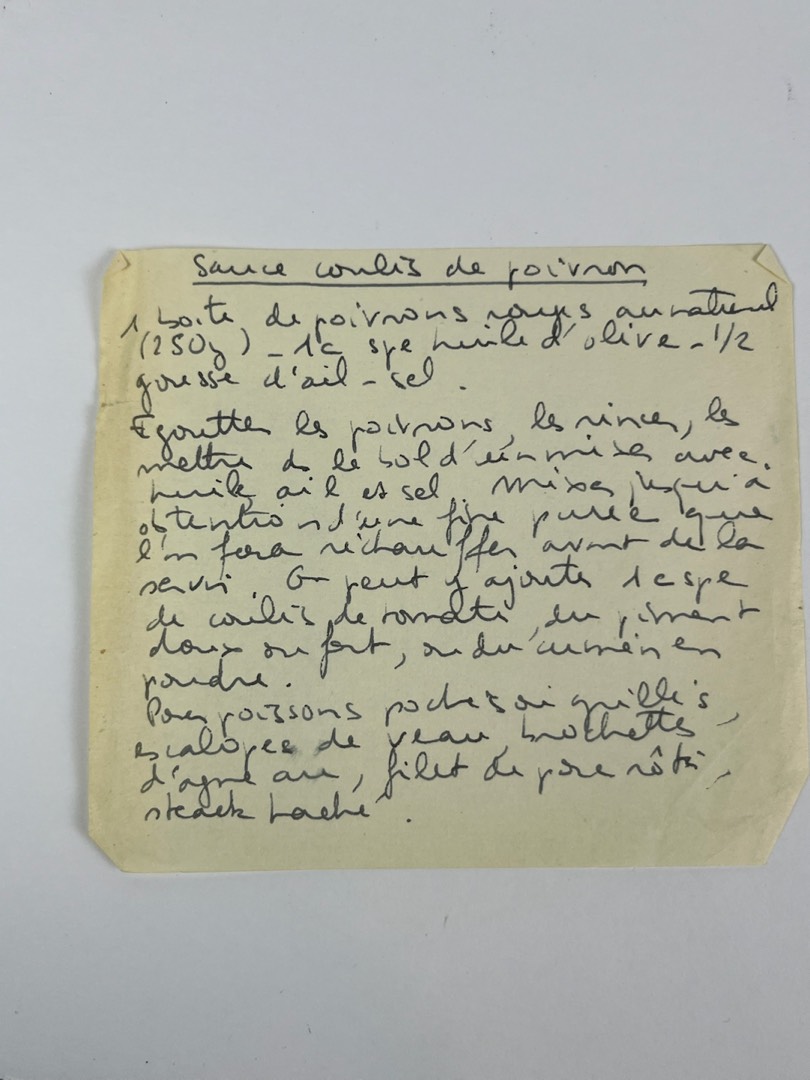 Sauce coulis de poivron
1 boite de poivrons rouges au naturel
(250g) - 1c spe huile d'olive - 1/2
gousse d'ail - sel.
Egoutter les poivrons, les rincer, les
mettre ds le bol d'un mixer avec
huile ail et sel. Mixer jusqu'à
obtention d'une fine purée que
l'on fera réchauffer avant de la
servir. On peut y ajouter 1c spe
de coulis de tomate, du piment
doux ou fort, ou du cumin en
poudre.
Pour poissons pochés ou grillés,
escalopes de veau, brochettes
d'agneau, filet de porc rôti,
steack haché.